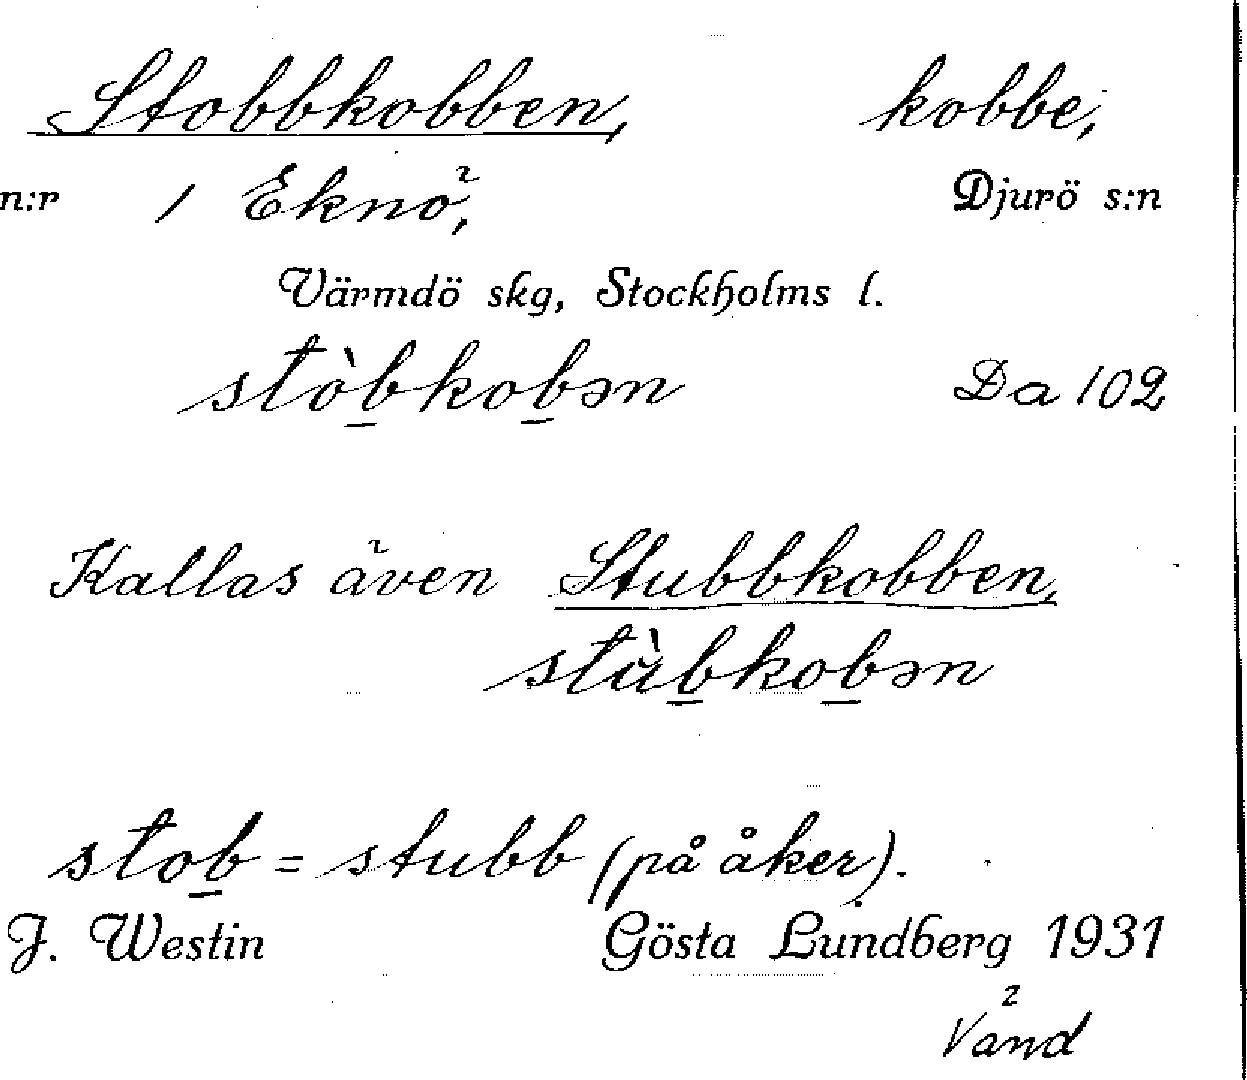 Stobbkobben, kobbe,
n:r 1 Eknö, Djurö s:n
Värmdö skg, Stockholms l.
stòb̲kob̲ən Da 102
Kallas även Stubbkobben,
stùb̲kob̲ən
stob̲ = stubb (på åker).
J. Westin Gösta Lundberg 1931
Vänd